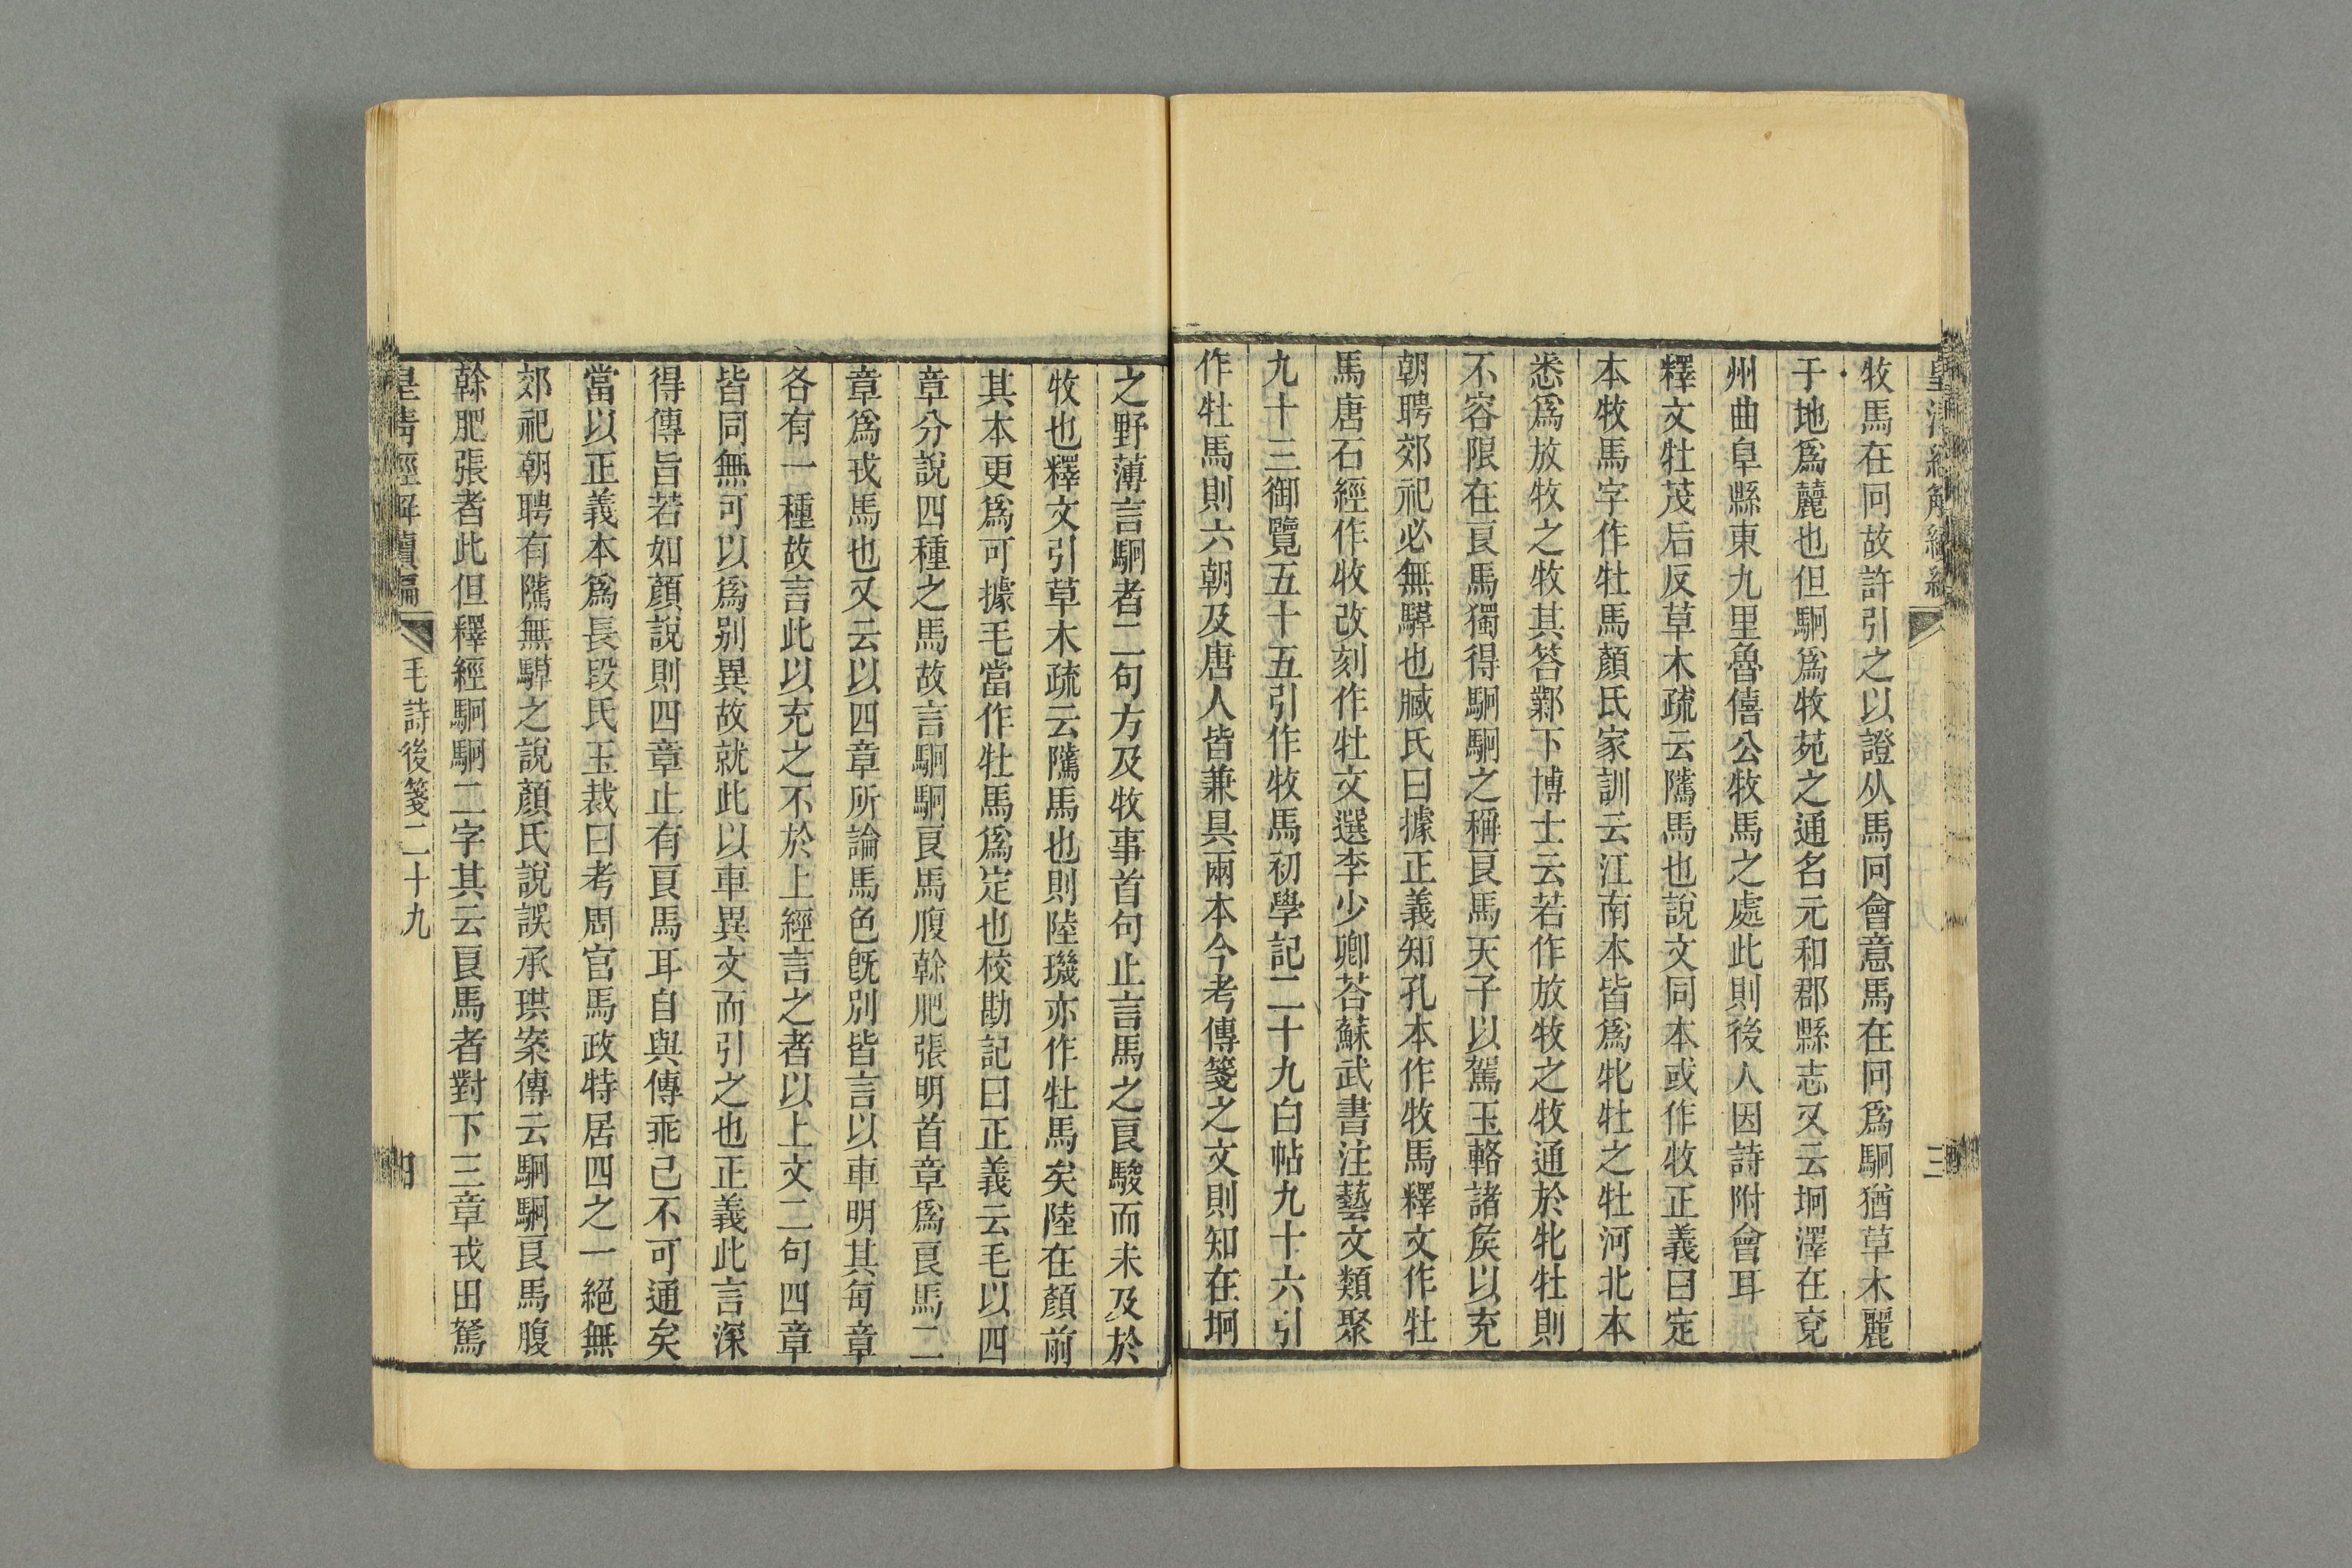 皇清經解續編
三
牧馬在冋故許引之以證从馬冋會意馬在冋爲駉猶草木麗
于地爲䕻也但駉爲牧苑之通名元和郡縣志又云坰澤在兗
州曲阜縣東九里魯僖公牧馬之處此則後人因詩附會耳
釋文牡茂后反草木疏云騭馬也說文同本或作牧正義曰定
本牧馬字作牡馬顏氏家訓云江南本皆爲牝牡之牡河北本
悉爲放牧之牧其答鄴下博士云若作放牧之牧通於牝牡則
不容限在良馬獨得駉駉之稱良馬天子以駕玉輅諸矦以充
朝聘郊祀必無騲也臧氏曰據正義知孔本作牧馬釋文作牡
馬唐石經作牧改刻作牡文選李少卿荅蘇武書注藝文類聚
九十三御覽五十五引作牧馬初學記二十九白帖九十六引
作牡馬則六朝及唐人皆兼具兩本今考傳箋之文則知在坰
之野薄言駉者二句方及牧事首句止言馬之良駿而未及於
牧也釋文引草木疏云騭馬也則陸璣亦作牡馬矣陸在顏前
其本更爲可據毛當作牡馬爲定也校勘記曰正義云毛以四
章分說四種之馬故言駉駉良馬腹榦肥張明首章爲良馬二
章爲戎馬也又云以四章所論馬色旣別皆言以車明其每章
各有一種故言此以充之不於上經言之者以上文二句四章
皆同無可以爲別異故就此以車異文而引之也正義此言深
得傳旨若如顏說則四章止有良馬耳自與傳乖己不可通矣
當以正義本爲長段氏玉裁曰考周官馬政特居四之一絕無
郊祀朝聘有騭無騲之說顏氏說誤承珙案傳云駉駉良馬腹
榦肥張者此但釋經駉駉二字其云良馬者對下三章戎田駑
皇清經解續編
毛詩後箋二十九
四